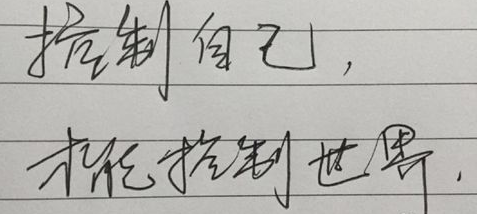 控制自己，
才能控制世界．